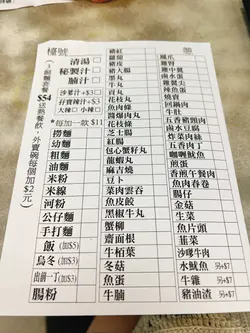 檯號
(3餸麵套餐
$54送熱餐飲,外賣碗每個加$2元)
清湯
秘製汁
腩汁
沙爹汁+$3
孖寶辣汁+$3
大辣 小辣
*每加一款 $11
撈麵
幼麵
粗麵
油麵
米粉
米線
河粉
公仔麵
手打麵
飯(加$5)
烏冬(加$3)
出前一丁(加$3)
腸粉
豬紅
蘿蔔
豬皮
豬大腸
墨丸
牛丸
貢丸
花枝丸
魚腐
豬肉丸
花枝餃
芝士腸
紅腸
包心墨魚丸
龍蝦丸
麻吉燒
豆卜
菜肉雲吞
魚皮餃
黑椒牛丸
蟹柳
齋面根
牛栢葉
冬菇
魚蛋
牛腩
鳳爪
雞翼
雞中翼
鹵水蛋
雞蛋
辣魚蛋
燒賣
回鍋肉
牛肚
五香豬頸肉
鹵水豆腐
炸菜肉絲
五香肉丁
咖喱魷魚
煎蛋
香煎午餐肉
魚肉春卷
腸仔
金菇
生菜
魚片頭
韮菜
沙嗲牛肉
水魷魚 另+$7
牛雜 另+$7
豬油渣 另+$7